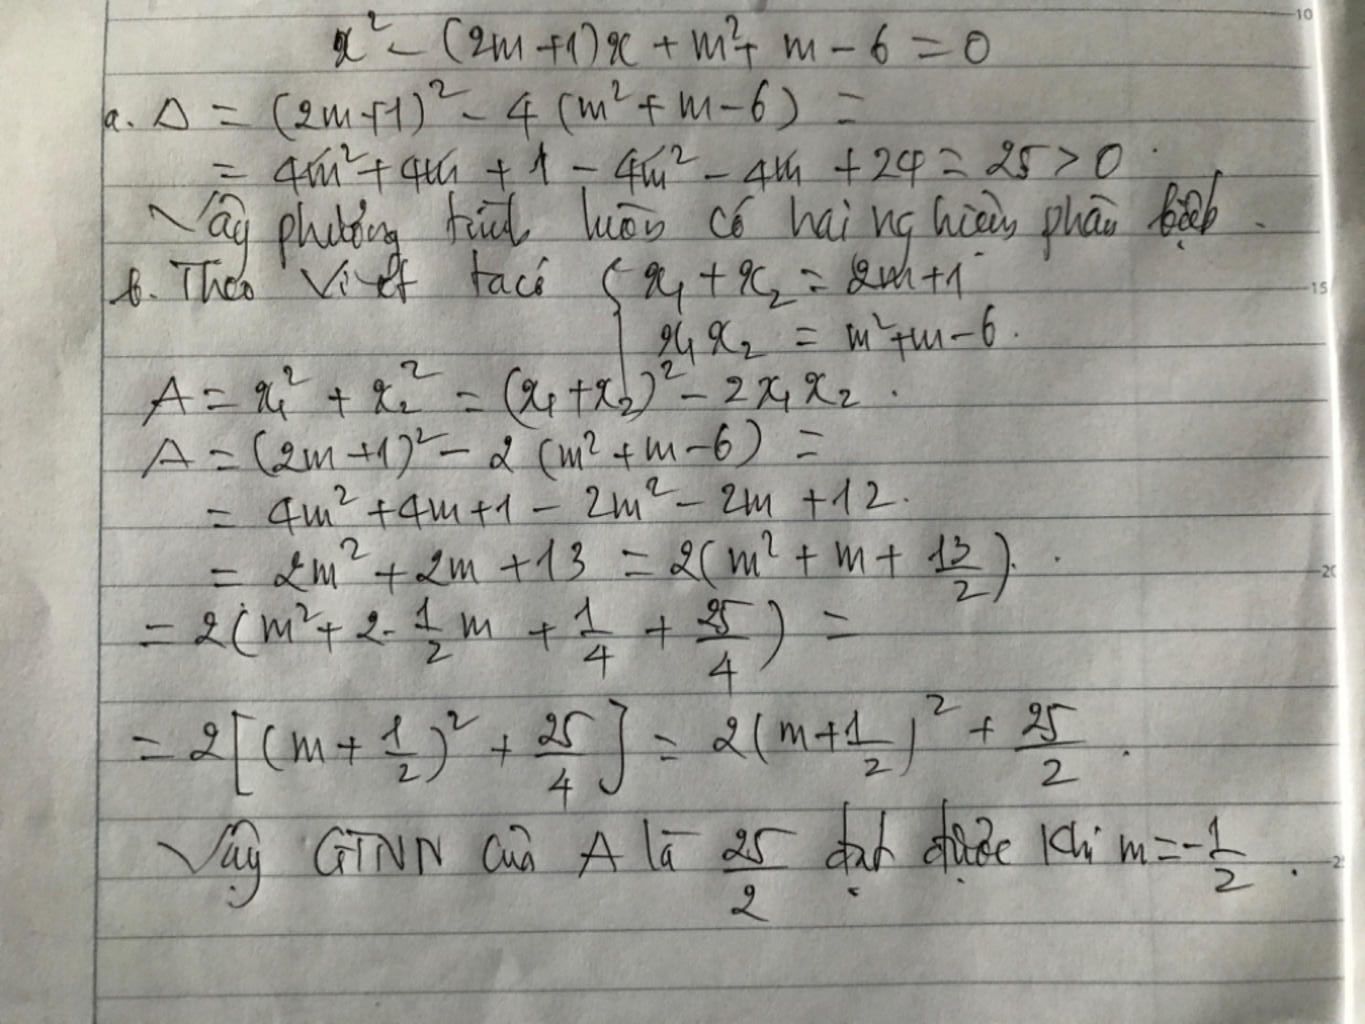 x² - (2m+1)x + m² + m - 6 = 0
a. Δ = (2m+1)² - 4 (m² + m - 6) =
= 4m² + 4m + 1 - 4m² - 4m + 24 = 25 > 0.
Vậy phương trình luôn có hai nghiệm phân biệt.
b. Theo Vi-et ta có { x₁ + x₂ = 2m+1
x₁ x₂ = m² + m - 6.
A = x₁² + x₂² = (x₁ + x₂)² - 2x₁ x₂.
A = (2m+1)² - 2 (m² + m - 6) =
= 4m² + 4m + 1 - 2m² - 2m + 12.
= 2m² + 2m + 13 = 2(m² + m + 13/2).
= 2(m² + 2·1/2 m + 1/4 + 25/4) =
= 2[(m + 1/2)² + 25/4] = 2(m + 1/2)² + 25/2.
Vậy GTNN của A là 25/2 đạt được khi m = -1/2.
10
15
20